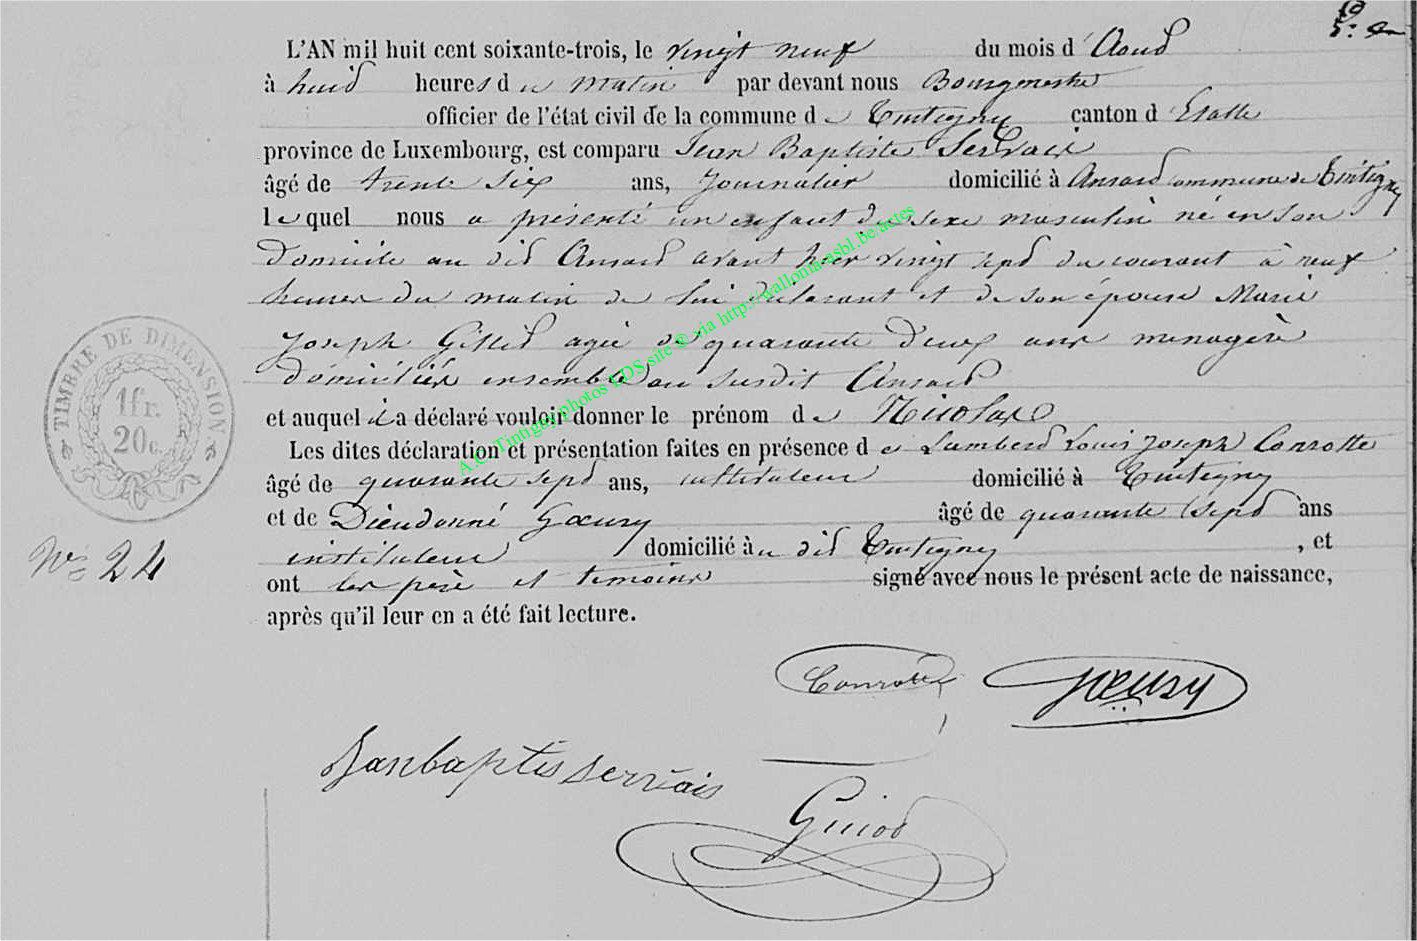 L'AN mil huit cent soixante-trois, le vingt neuf du mois d'Aout
à huit heures du matin par devant nous Bourgmestre
officier de l'état civil de la commune de Tintigny canton d'Etalle
province de Luxembourg, est comparu Jean Baptiste Servais
âgé de trente six ans, Journalier domicilié à Ansart commune de Tintigny
lequel nous a présenté un enfant du sexe masculin né en son
domicile au dit Ansart avant hier vingt sept du courant à neuf
heures du matin de lui déclarant et de son épouse Marie
Joseph Gillet agée de quarante deux ans menagère
domiciliés ensemble au susdit Ansart
et auquel il a déclaré vouloir donner le prénom de Nicolas
Les dites déclaration et présentation faites en présence de Lambert Louis Joseph Conrotte
âgé de quarante sept ans, cultivateur domicilié à Tintigny
et de Dieudonné Gœury âgé de quarante sept ans
instituteur domicilié au dit Tintigny, et
ont les père et temoins signé avec nous le présent acte de naissance,
après qu'il leur en a été fait lecture.
TIMBRE DE DIMENSION
1 fr.
20 c.
N° 24
Conrotte Gœury
Janbaptis servais
Guiot
A.C. Tintigny photos LDS site © via http://wallonia-asbl.be/actes